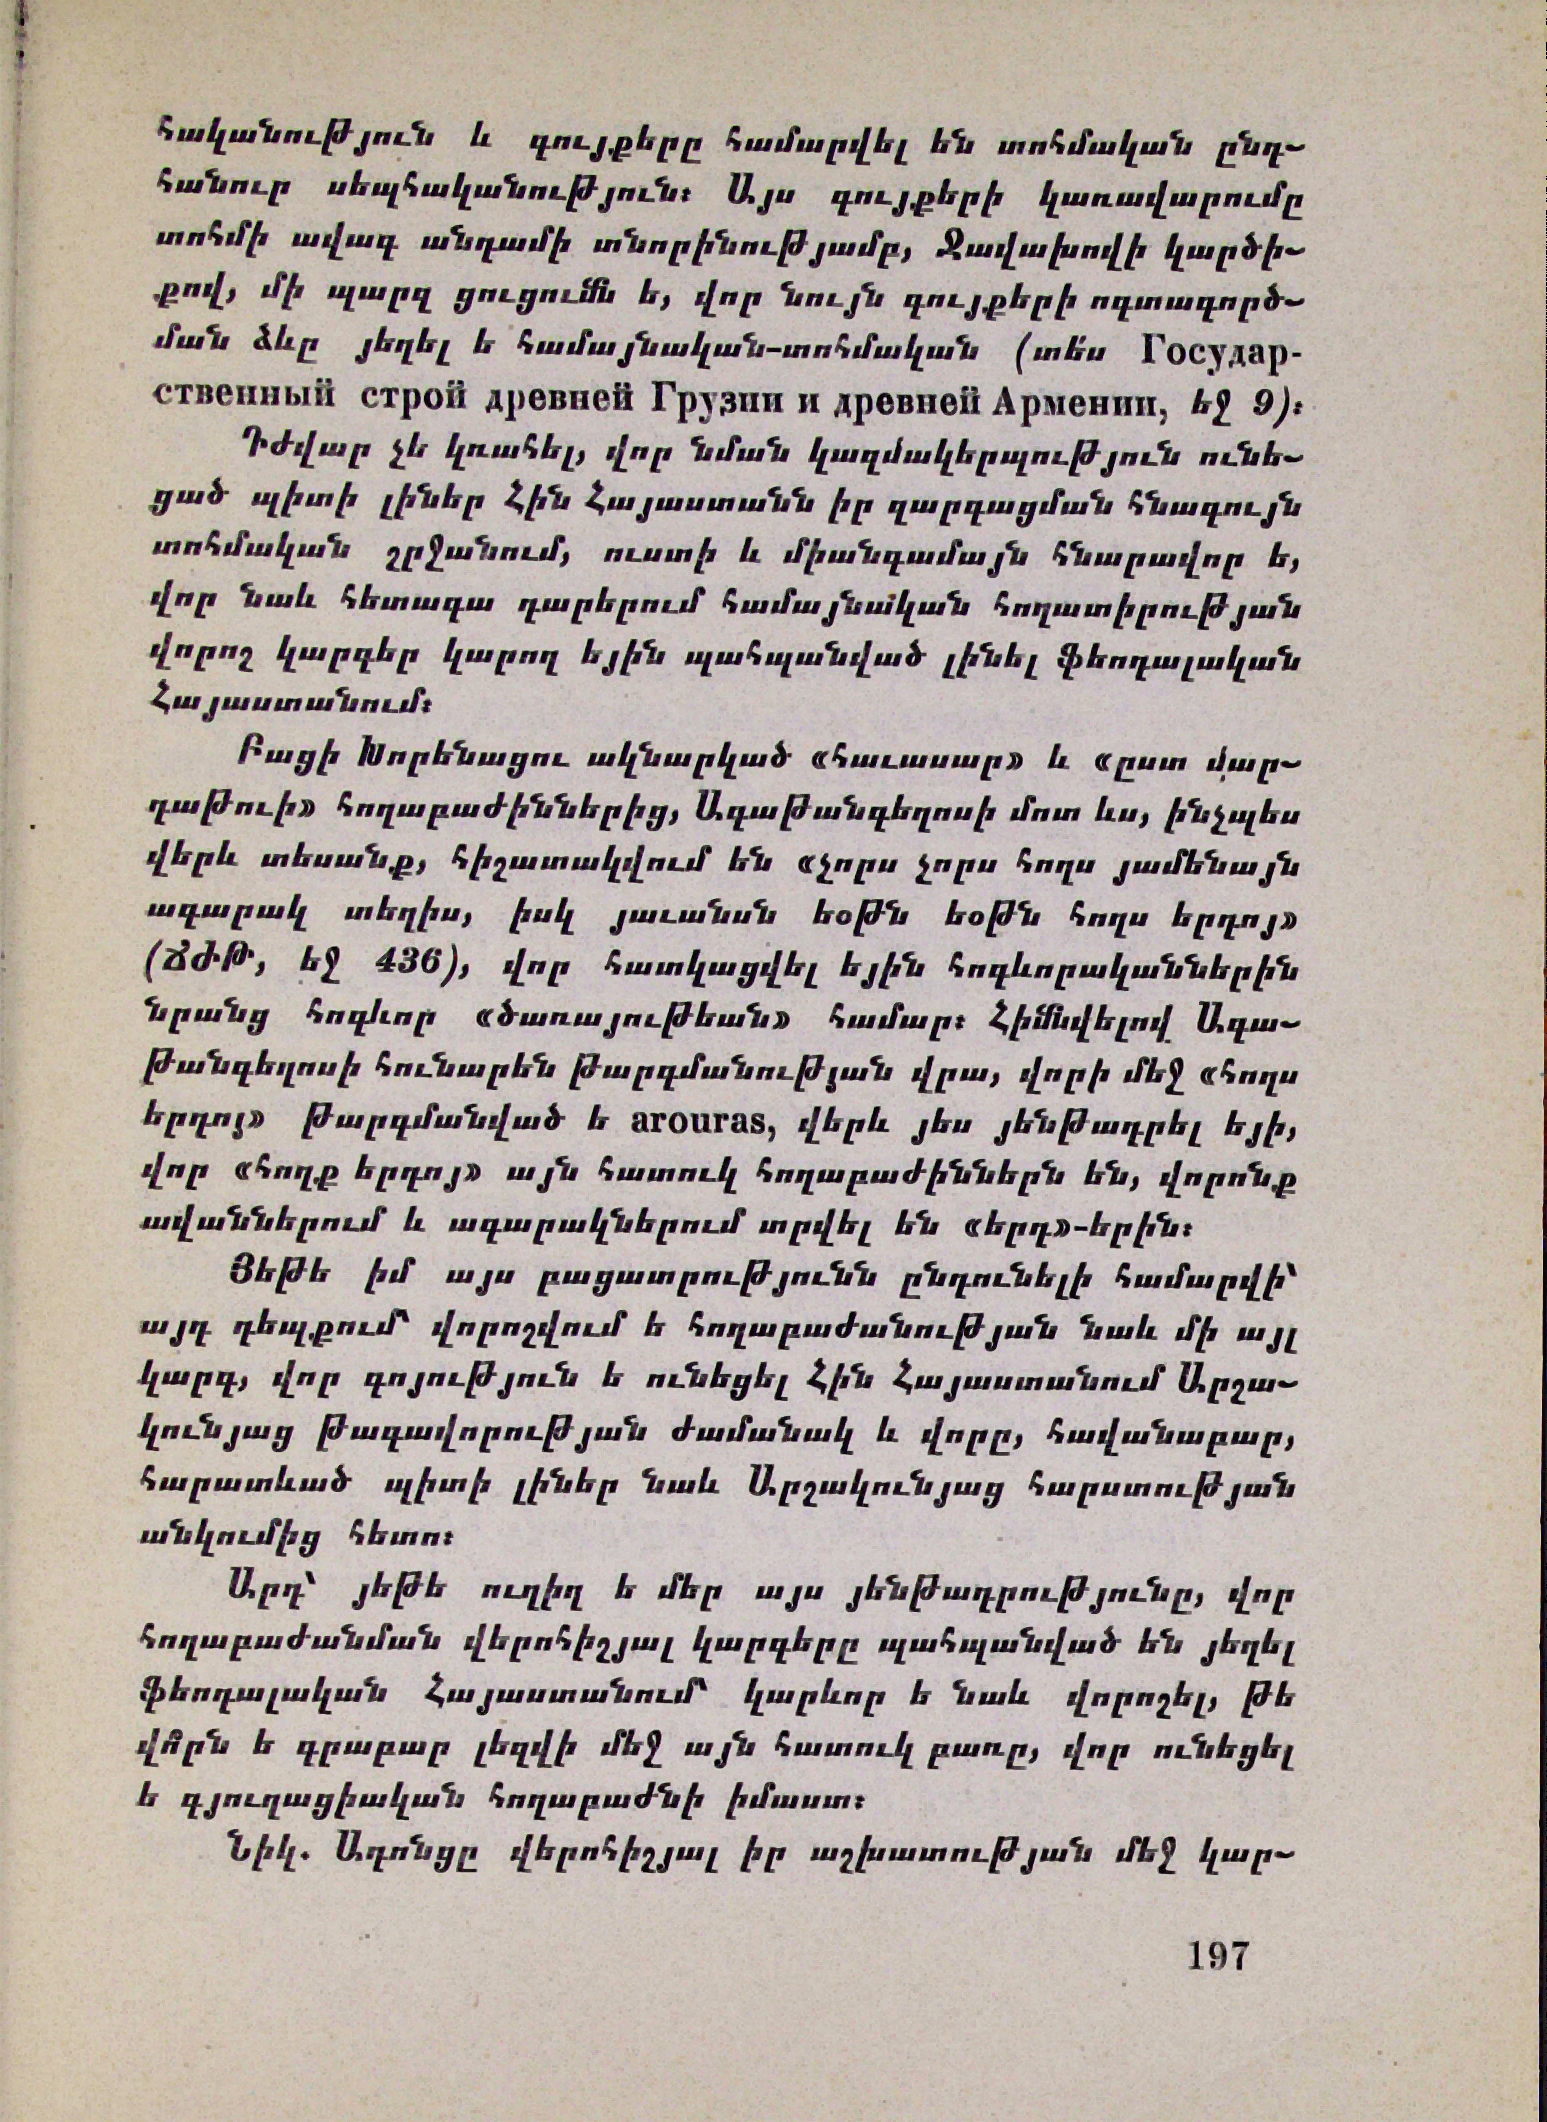 հականություն և գույքերը համարվել են տոհմական ընդ-
հանուր սեպհականություն։ Այս գույքերի կառավարումը
տոհմի ավագ անդամի տնորինությամբ, Ջավախովի կարծի-
քով, մի պարզ ցուցումն ե, վոր նույն գույքերի ոգտագործ-
ման ձևը յեղել ե համայնական-տոհմական (տե՛ս Государ-
ственный строй древней Грузии и древней Армении, եջ 9)։
Դժվար չե կռահել, վոր նման կազմակերպություն ունե-
ցած պիտի լիներ Հին Հայաստանն իր զարգացման հնագույն
տոհմական շրջանում, ուստի և միանգամայն հնարավոր ե,
վոր նաև հետագա դարերում համայնական հողատիրության
վորոշ կարգեր կարող եյին պահպանված լինել ֆեոդալական
Հայաստանում։
Բացի Խորենացու ակնարկած «հաւասար» և «ըստ մար-
դաթուի» հողաբաժիններից, Ագաթանգեղոսի մոտ ևս, ինչպես
վերև տեսանք, հիշատակվում են «չորս չորս հողս յամենայն
ագարակ տեղիս, իսկ յաւանսն եօթն եօթն հողս երդոյ»
(ՃԺԹ, եջ 436), վոր հատկացվել եյին հոգևորականներին
նրանց հոգևոր «ծառայութեան» համար։ Հիմնվելով Ագա-
թանգեղոսի հունարեն թարգմանության վրա, վորի մեջ «հողս
երդոյ» թարգմանված ե arouras, վերև յես յենթադրել եյի,
վոր «հողք երդոյ» այն հատուկ հողաբաժիններն են, վորոնք
ավաններում և ագարակներում տրվել են «երդ»-երին։
Յեթե իմ այս բացատրությունն ընդունելի համարվի՝
այդ դեպքում՝ վորոշվում ե հողաբաժանության նաև մի այլ
կարգ, վոր գոյություն ե ունեցել Հին Հայաստանում Արշա-
կունյաց թագավորության ժամանակ և վորը, հավանաբար,
հարատևած պիտի լիներ նաև Արշակունյաց հարստության
անկումից հետո։
Արդ՝ յեթե ուղիղ ե մեր այս յենթադրությունը, վոր
հողաբաժանման վերոհիշյալ կարգերը պահպանված են յեղել
ֆեոդալական Հայաստանում՝ կարևոր ե նաև վորոշել, թե
վո՞րն ե գրաբար լեզվի մեջ այն հատուկ բառը, վոր ունեցել
ե գյուղացիական հողաբաժնի իմաստ։
Նիկ. Ադոնցը վերոհիշյալ իր աշխատության մեջ կար-
197